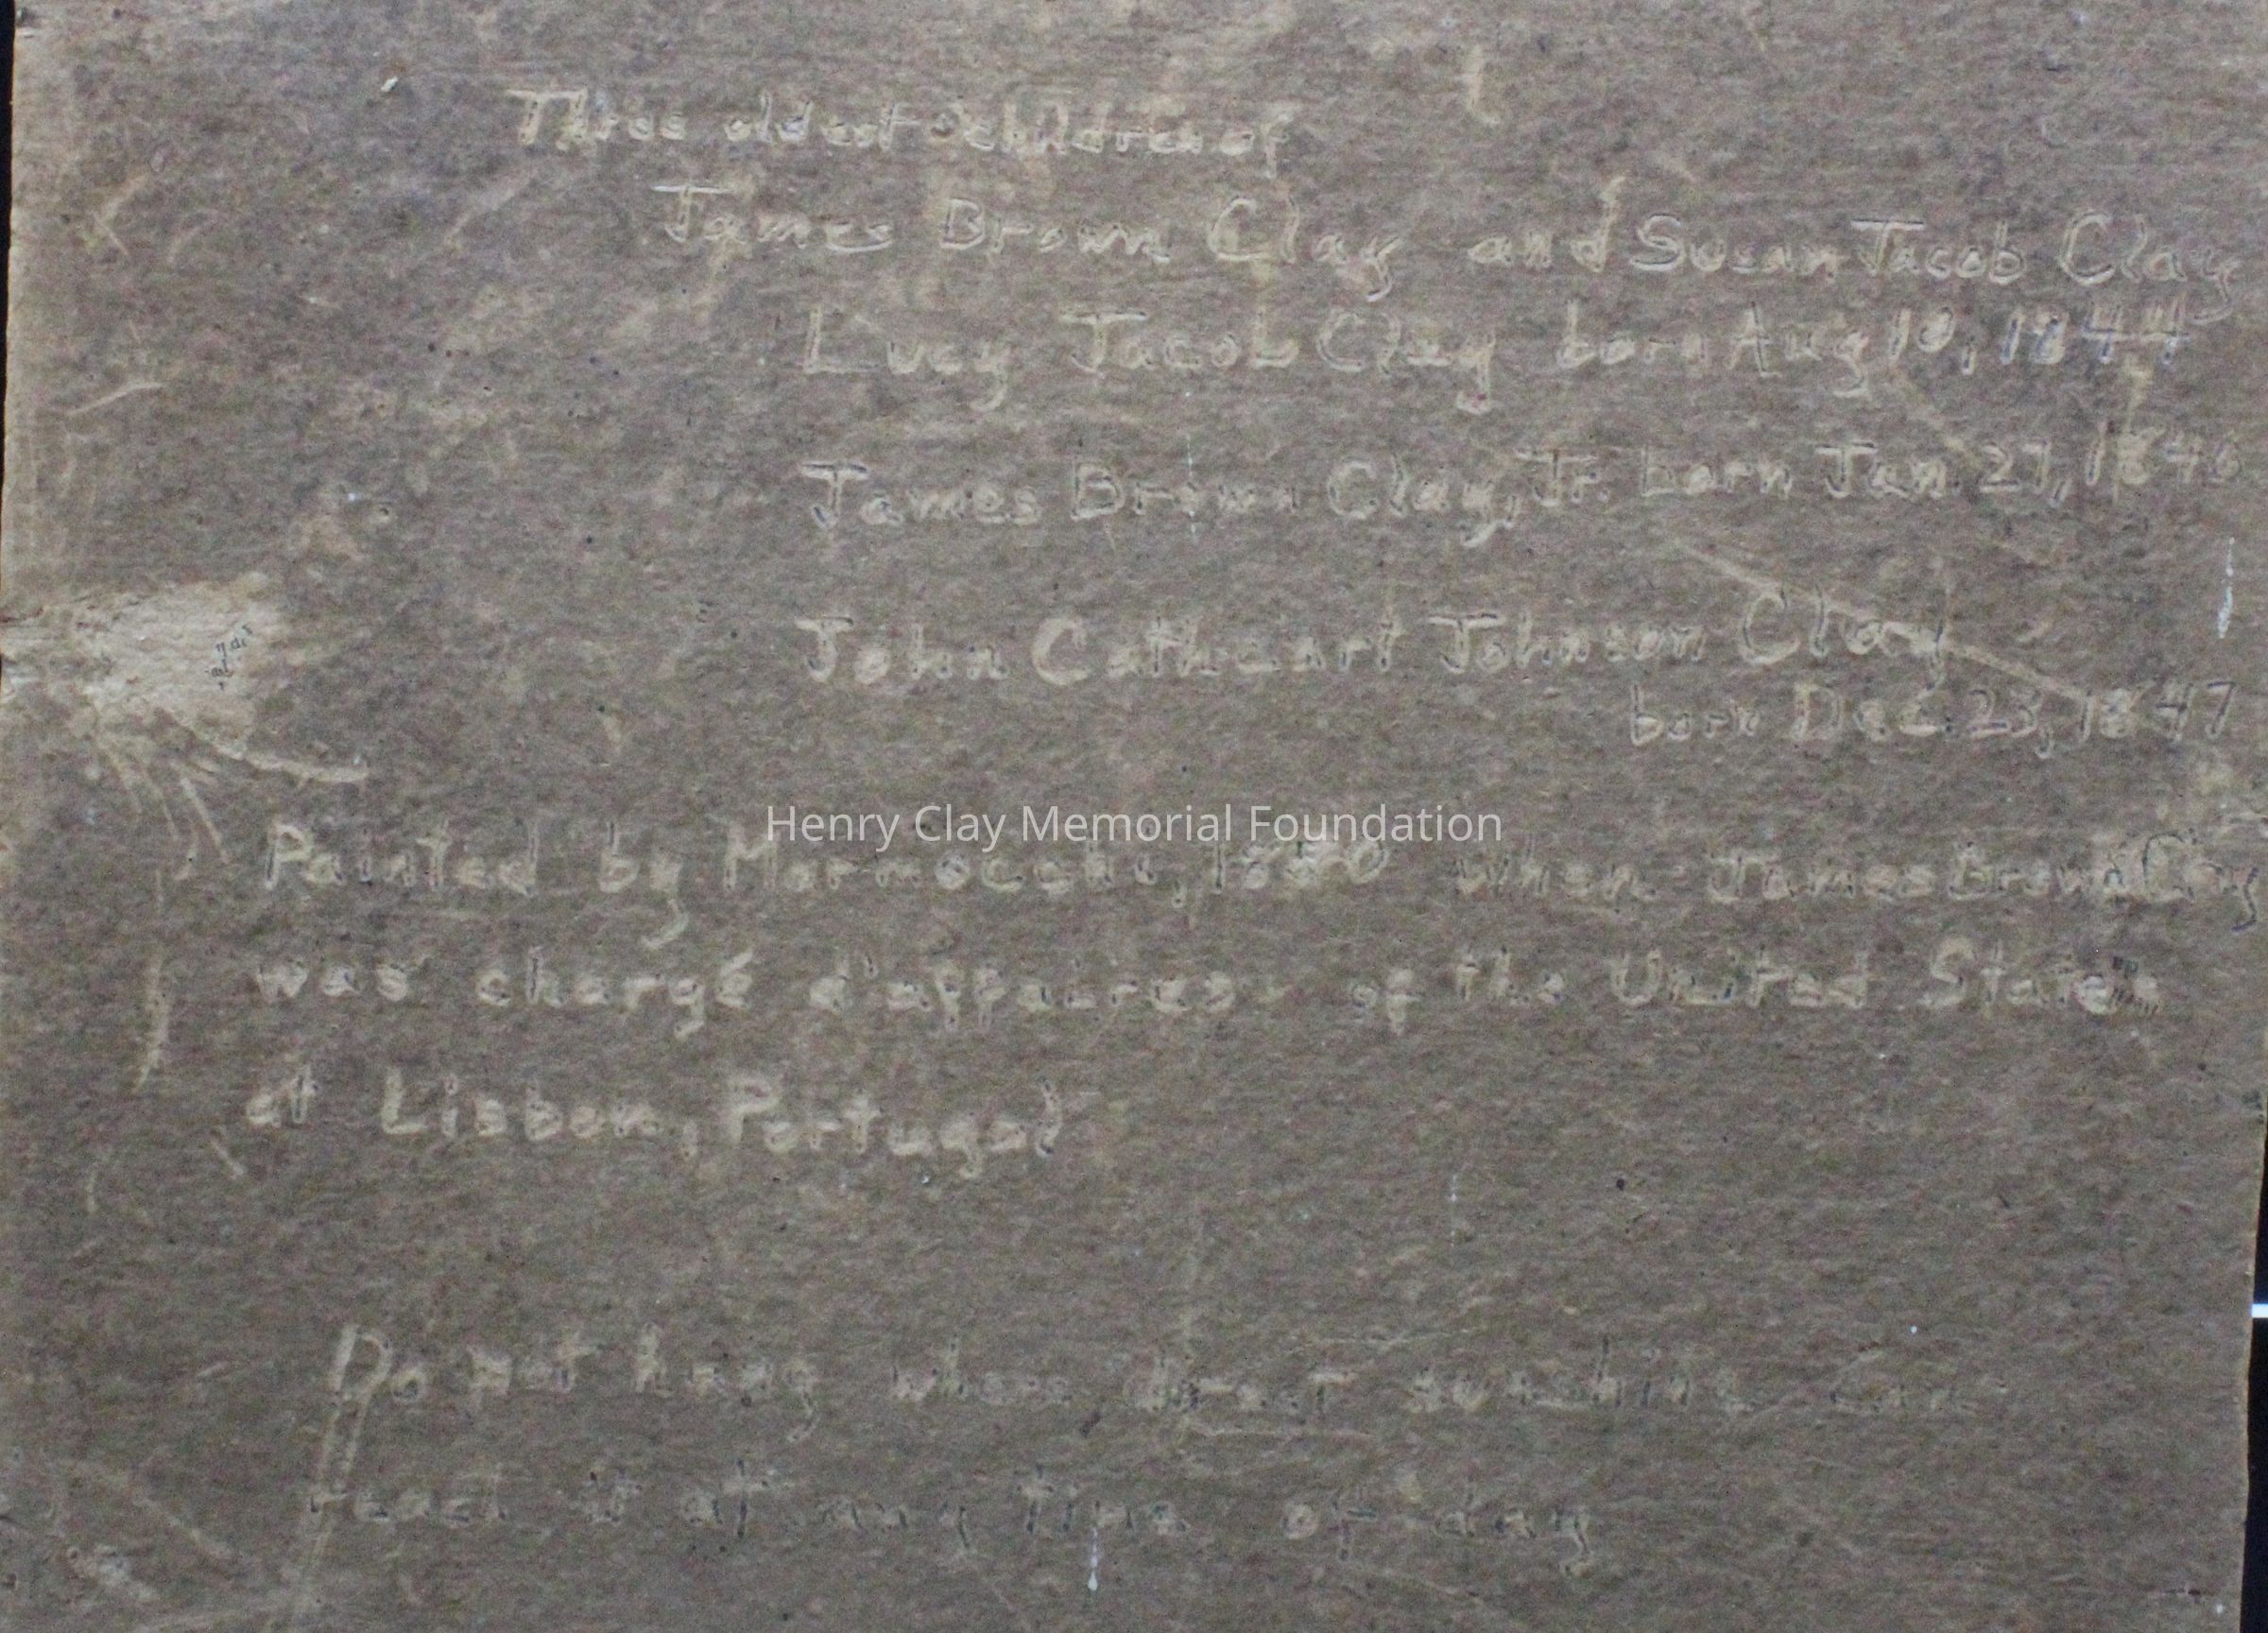 Three oldest children of
James Brown Clay and Susan Jacob Clay
Lucy Jacob Clay born Aug 10, 1844
James Brown Clay, Jr. born Jan. 27, 1846
John Cathcart Johnson Clay
born Dec. 23, 1847
Henry Clay Memorial Foundation
Painted by 1850 when James Brown Clay
was chargé d'affaires of the United States
at Lisbon, Portugal
Do not hang where direct sunshine can
reach it at any time of day